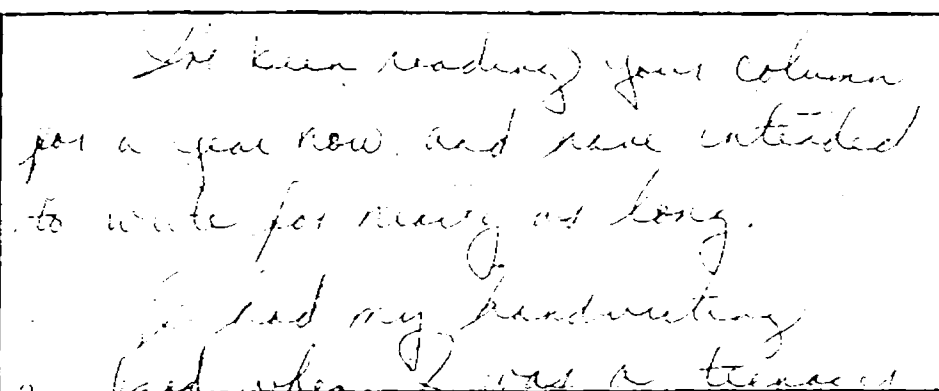 I've been reading your column
for a year now and have intended
to write for nearly as long.
I had my handwriting
when I was a